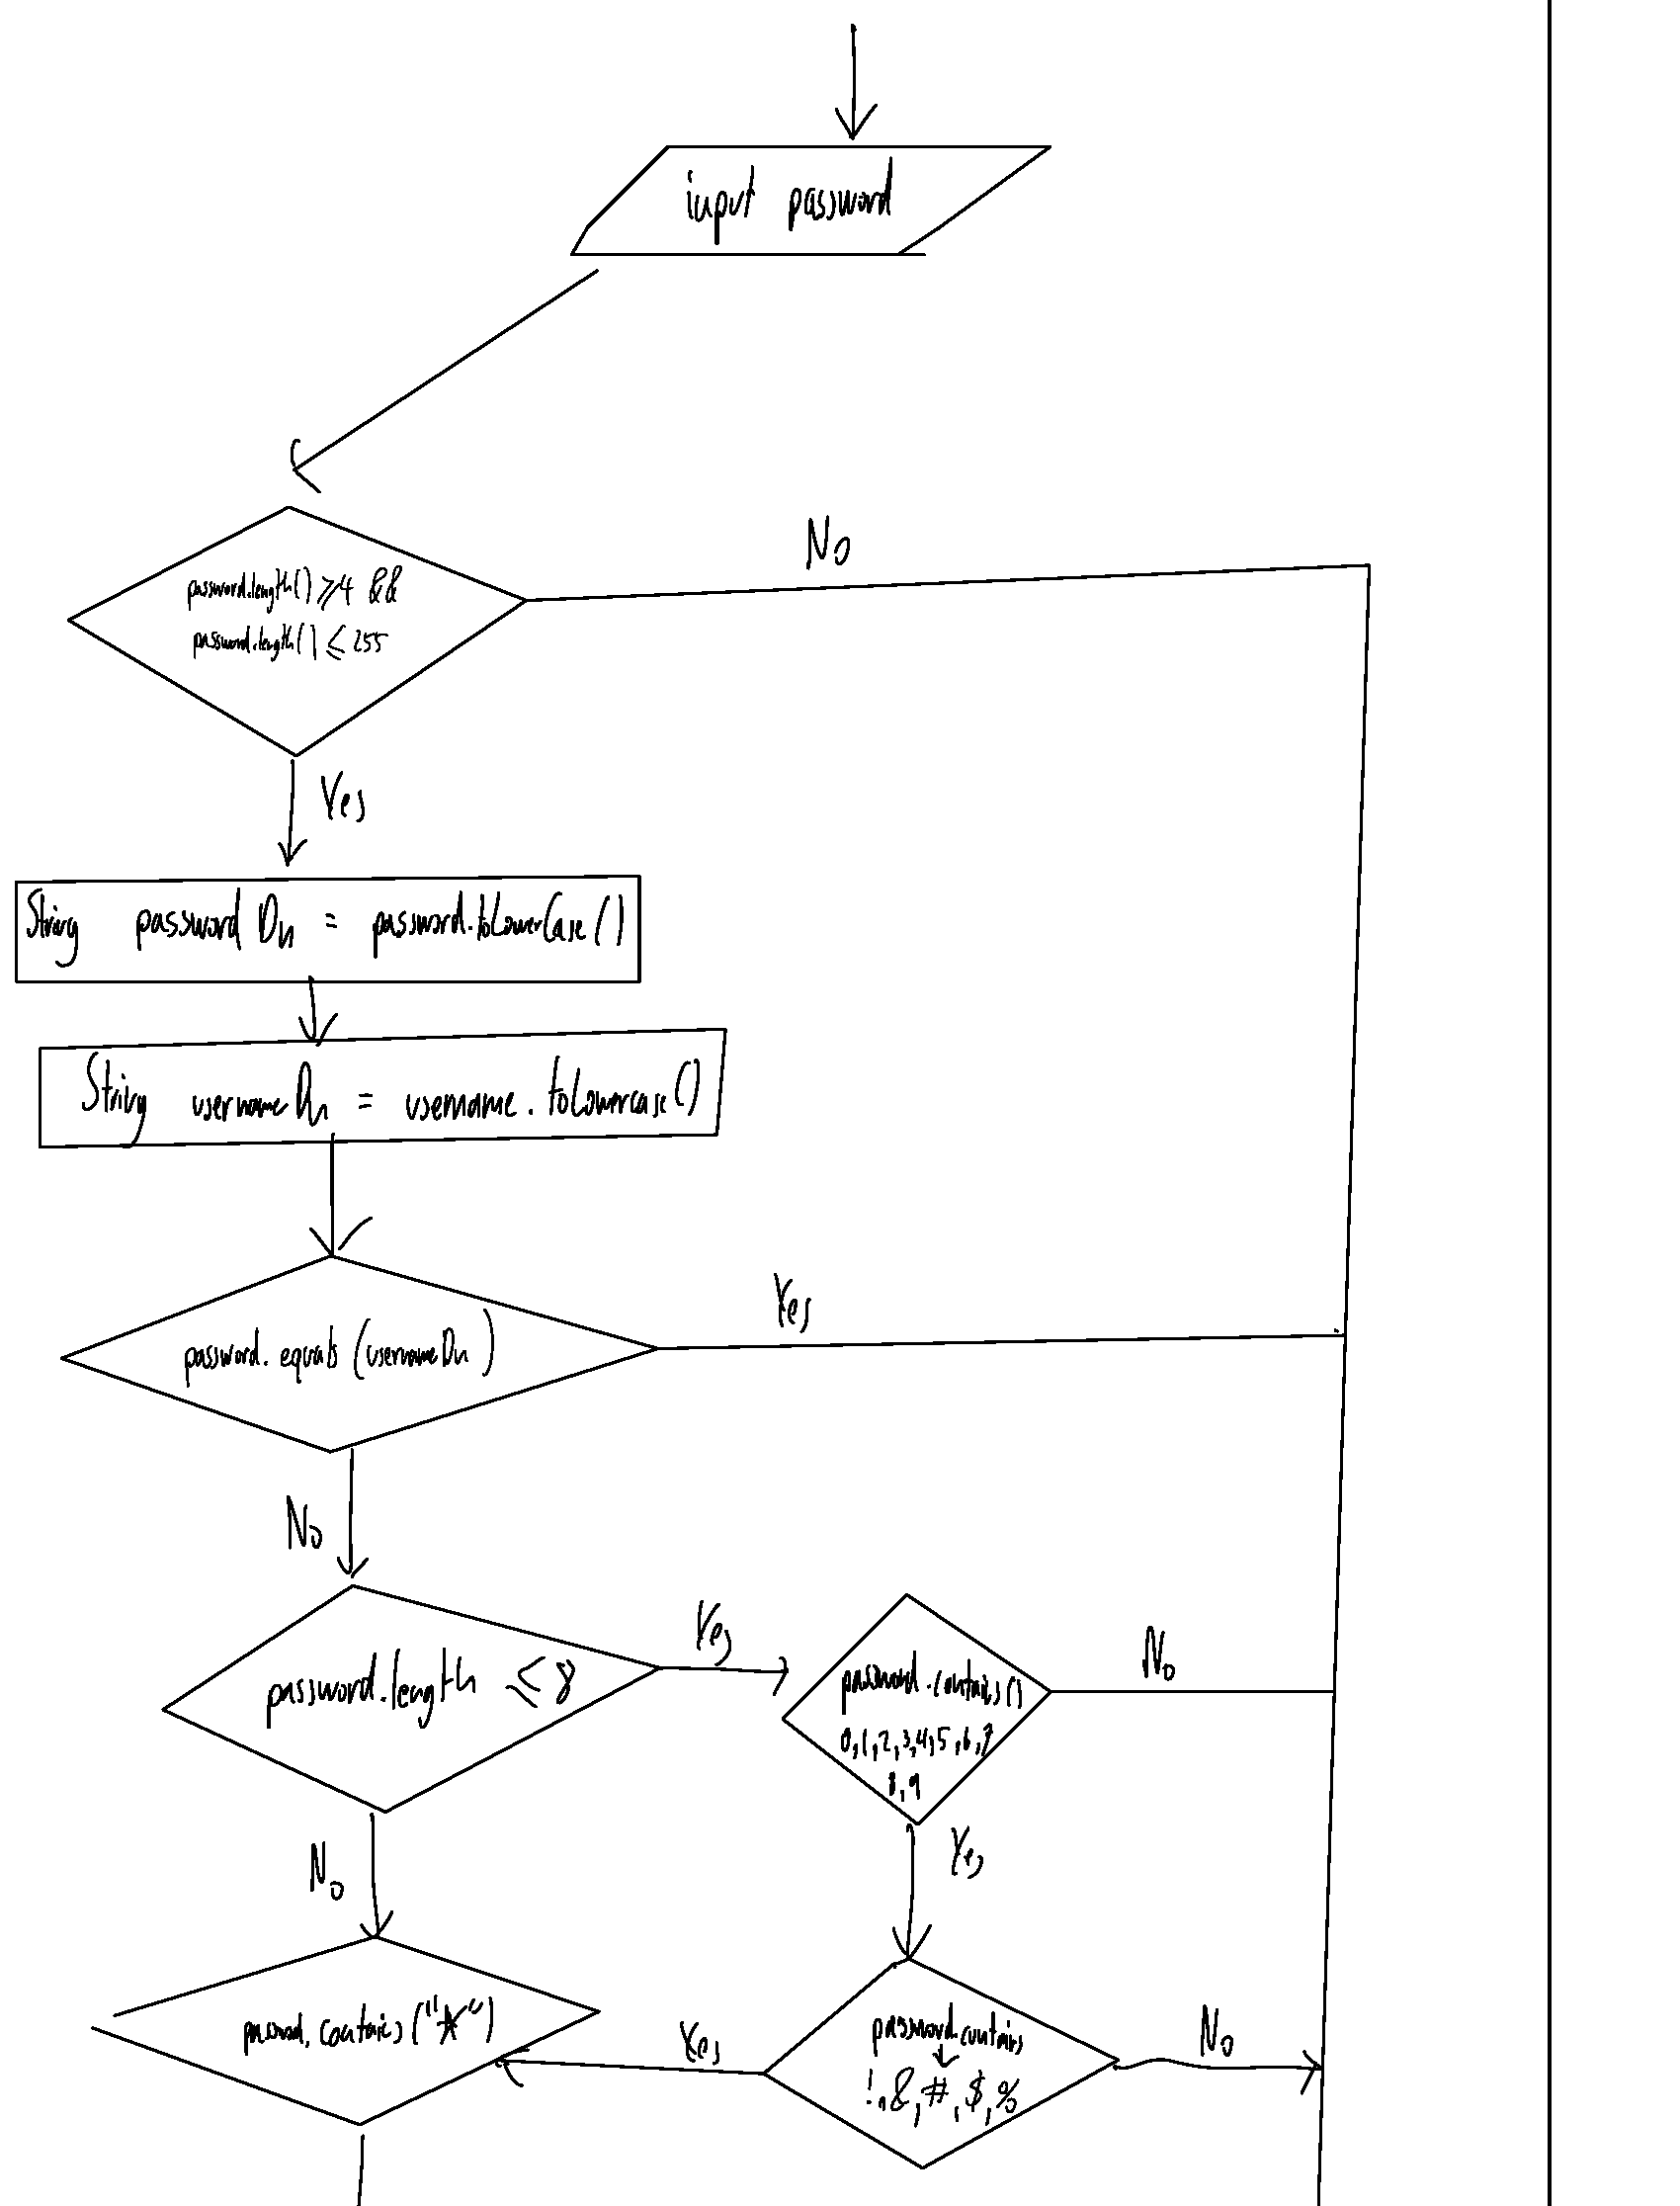 input password
No
password.length() ⩾4 &&
password.length() ⩽ 255
Yes
String password Dn = password.toLowerCase()
String username Dn = username.toLowercase()
Yes
password.equals (usernameDn)
No
Yes
No
password.length ⩽8
password.contains()
0,1,2,3,4,5,6,7
8,9
Yes
No
password.contains("*")
Yes
password.contains
No
!,&,#,$,%